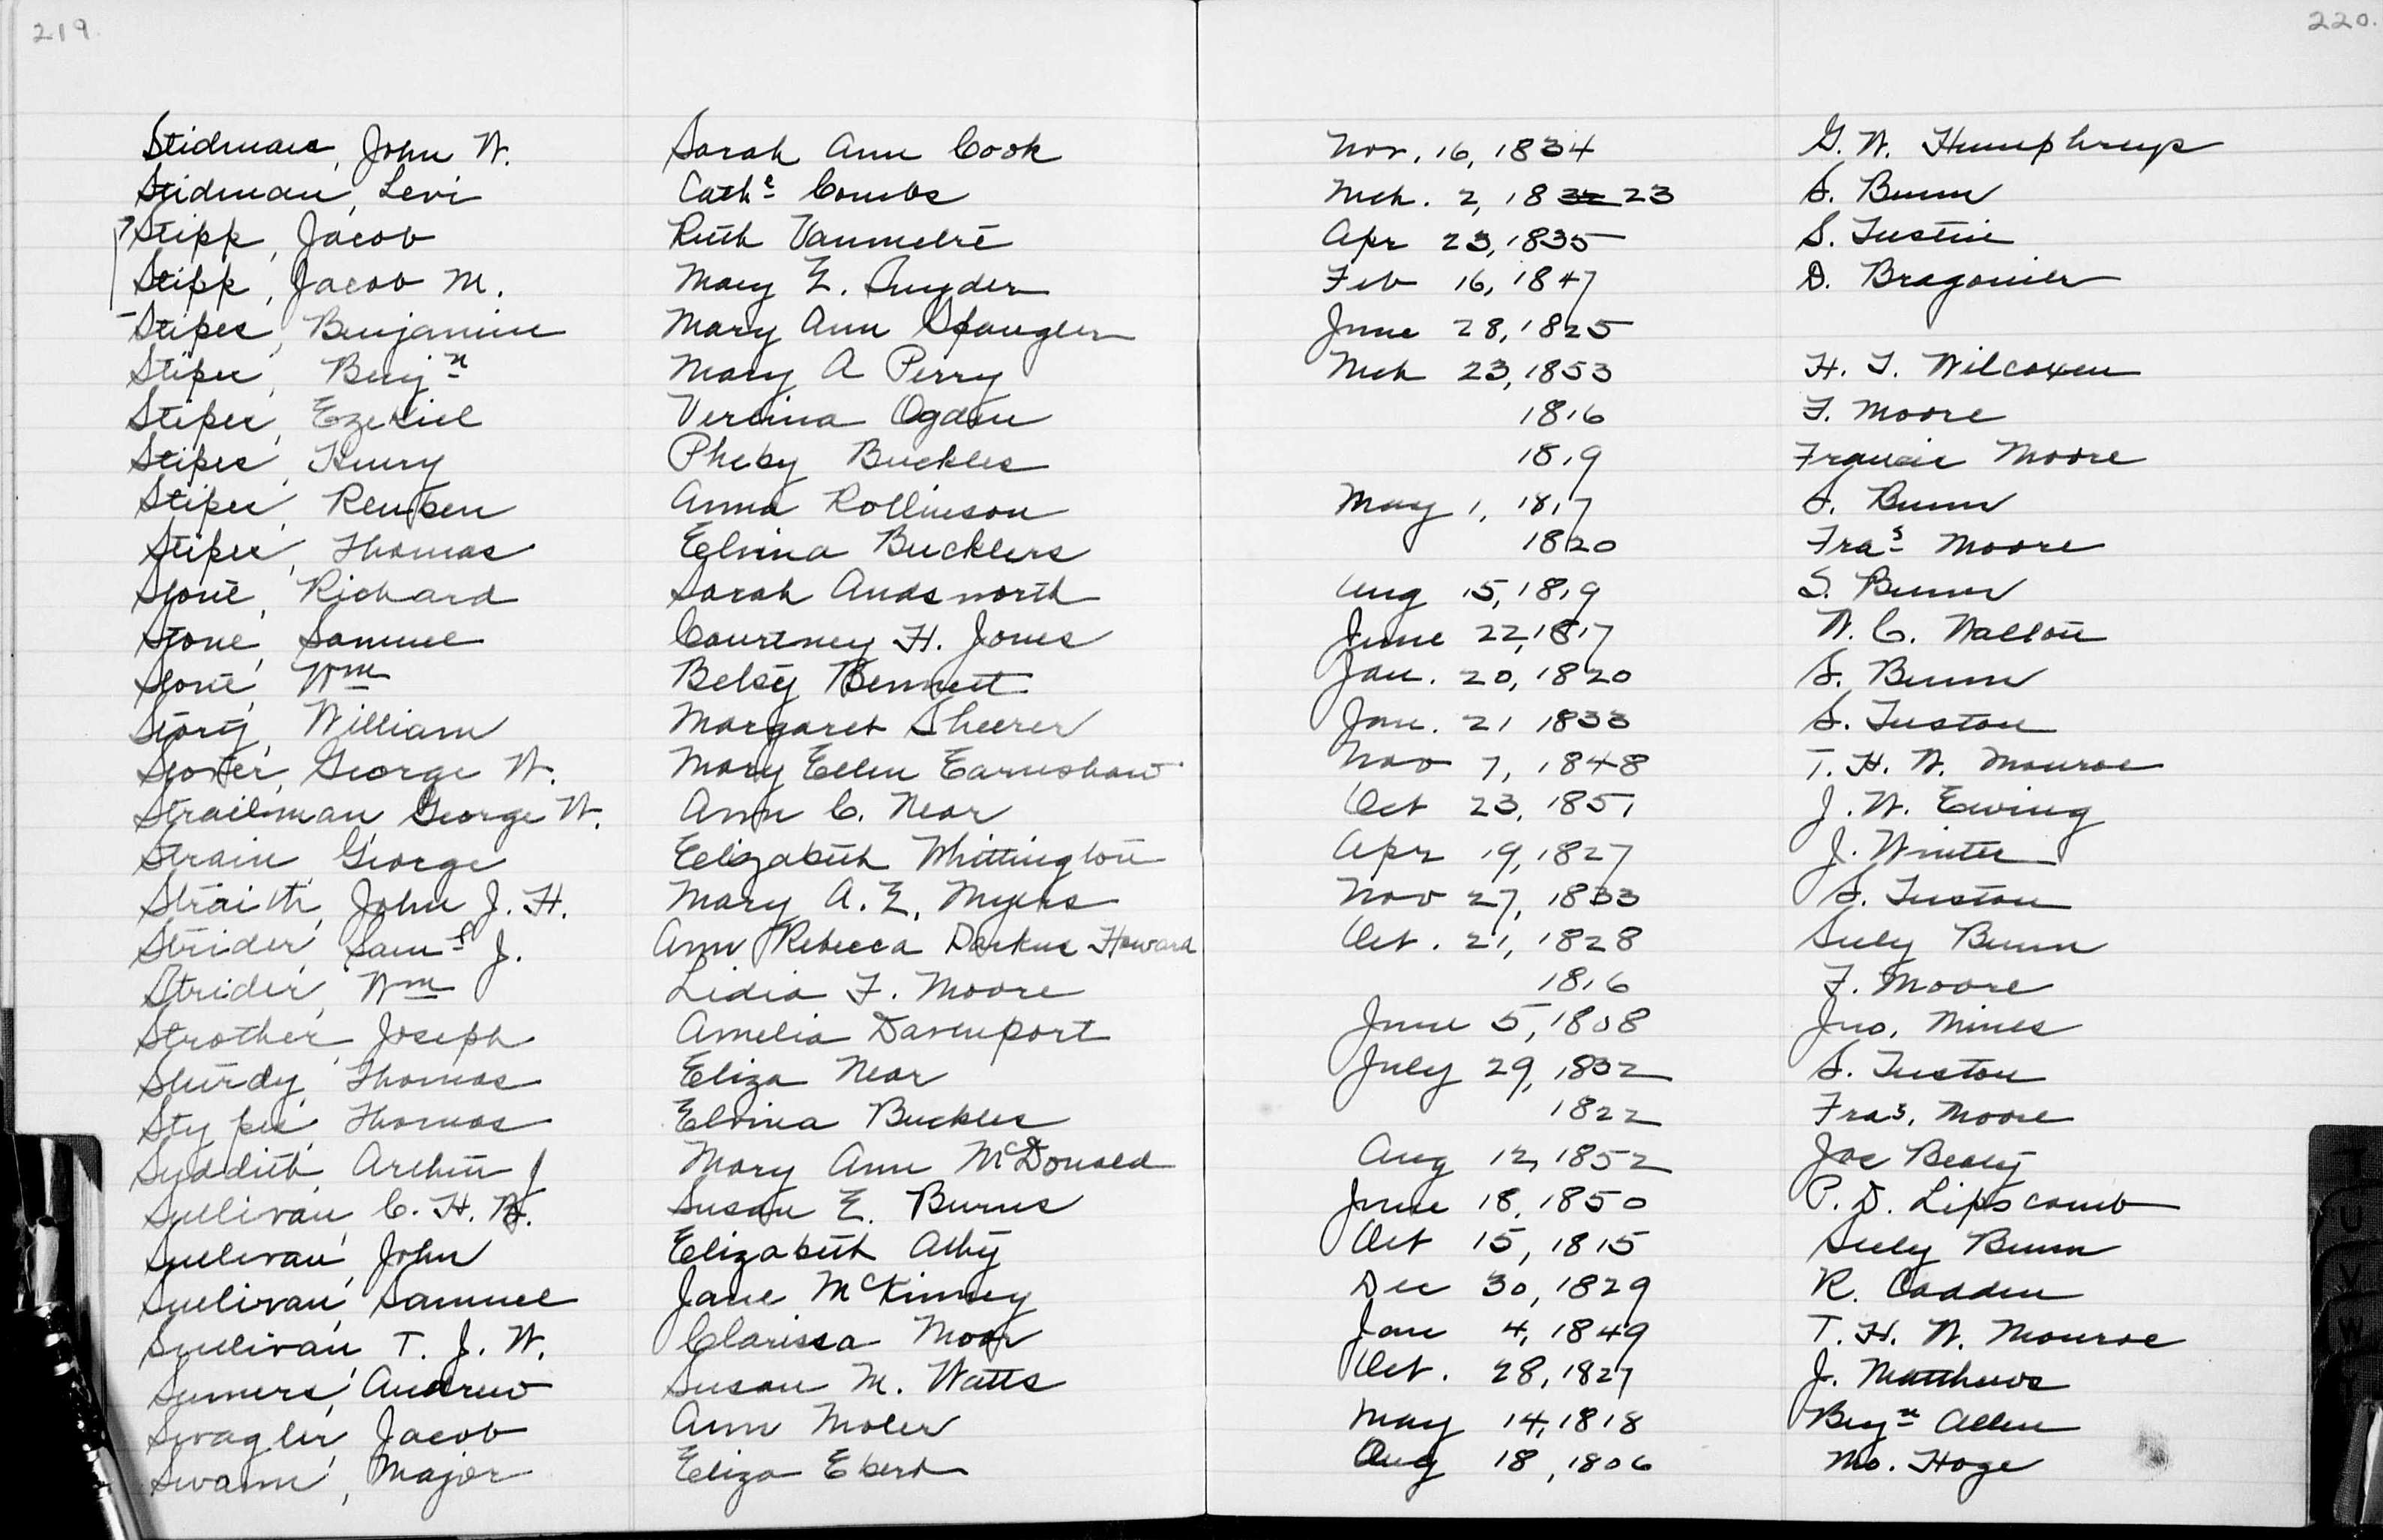 219. 220.
Stidman, John W. Sarah Ann Cook Nov. 16, 1834 G. W. Humphreys
Stidman, Levi Cathe Combs Mch. 2, 18 32 23 S. Bunn
Stipp, Jacob Ruth Vanmetre Apr 23, 1835 S. Tustin
Stipp, Jacob M. Mary E. Snyder Feb 16, 1847 D. Bragonier
Stipes, Benjamin Mary Ann Spangler June 28, 1825
Stipes, Benjn Mary A Perry Mch 23, 1853 H. T. Wilcoxen
Stipes, Ezekiel Verlina Ogden 1816 F. Moore
Stipes, Henry Pheby Buckles 1819 Francis Moore
Stipes, Reuben Anna Rollinson May 1, 1817 S. Bunn
Stipes, Thomas Elvina Bucklers 1820 Fras Moore
Stone, Richard Sarah Audsworth Aug 15, 1819 S. Bunn
Stone, Samuel Courtney H. Jones June 22, 1817 W. C. Walton
Stone, Wm Betsy Bennett Jan. 20, 1820 S. Bunn
Story, William Margaret Sheerer Jan. 21 1833 S. Tuston
George W. Mary Ellen Earnshaw Nov 7, 1848 T. H. W. Monroe
Strailman, George W. Ann C. Near Oct 23, 1851 J. W. Ewing
Strain, George Elizabeth Whittington Apr 19, 1827 J. Winter
Straith, John J. H. Mary A. E. Myers Nov 27, 1833 S. Tuston
Strider, Saml J. Ann Rebecca Darkus Howard Oct. 21, 1828 Seely Bunn
Strider, Wm Lidia F. Moore 1816 F. Moore
Strother, Joseph Amelia Davenport June 5, 1808 Jno. Mines
Sturdy, Thomas Eliza Near July 29, 1832 S. Tuston
Stypes, Thomas Elvina Buckles 1822 Fras. Moore
Suddith, Arthur J Mary Ann McDonald Aug 12, 1852 Jos Bealy
Sullivan, C. H. Susan E. Burns June 18, 1850 P. D. Lipscomb
Sullivan, John Elizabeth Athy Oct 15, 1815 Seely Bunn
Sullivan, Samuel Jane McKinney Dec 30, 1829 R. Cadden
Sullivan, T. J. W. Clarissa Moor Jan 4, 1849 T. H. W. Monroe
Sumers, Andrew Susan M. Watts Oct. 28, 1827 J. Matthews
Swagler, Jacob Ann Moler May 14, 1818 Benjn Allen
Swann, Major Eliza Ebert Aug 18, 1806 Mo. Hoge
T
U
V
W